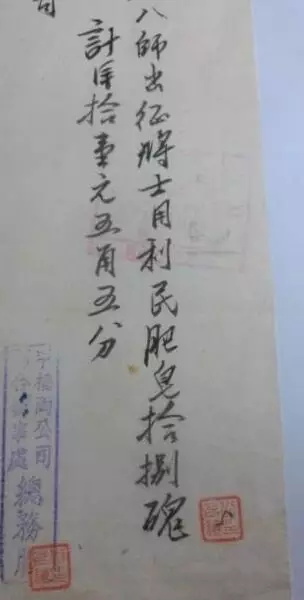 八師出征將士用利民肥皂拾捌磈
計洋拾壹元五角五分
公司
事處
總務